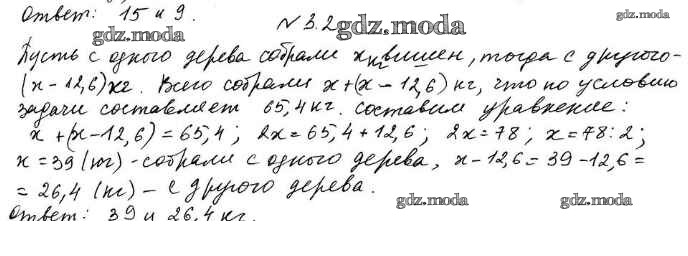 Ответ: 15 и 9.
gdz.moda
N 3.2
gdz.moda
Пусть с одного дерева собрали x кг вишен, тогда с другого -
(x - 12,6) кг. Всего собрали x + (x - 12,6) кг, что по условию
задачи составляет 65,4 кг. составим уравнение:
x + (x - 12,6) = 65,4; 2x = 65,4 + 12,6; 2x = 78; x = 78 : 2;
x = 39 (кг) - собрали с одного дерева, x - 12,6 = 39 - 12,6 =
= 26,4 (кг) - с другого дерева.
Ответ: 39 и 26,4 кг.
gdz.moda
gdz.moda
gdz.moda
gdz.moda